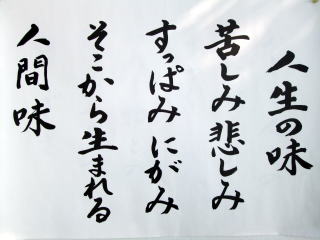 人生の味
苦しみ 悲しみ
すっぱみ にがみ
そこから生まれる
人間味